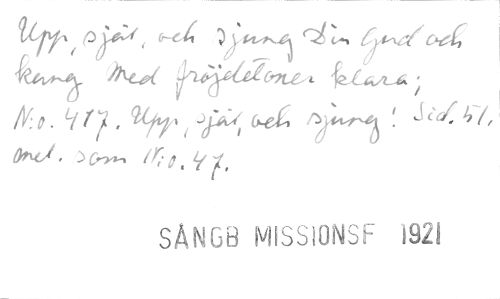 Upp, själ, och sjung Din Gud och
kung Med fröjdetoner klara;
N:o. 417. Upp, själ, och sjung! Sid. 51.
mel. som N:o. 47.
SÅNGB MISSIONSF 1921